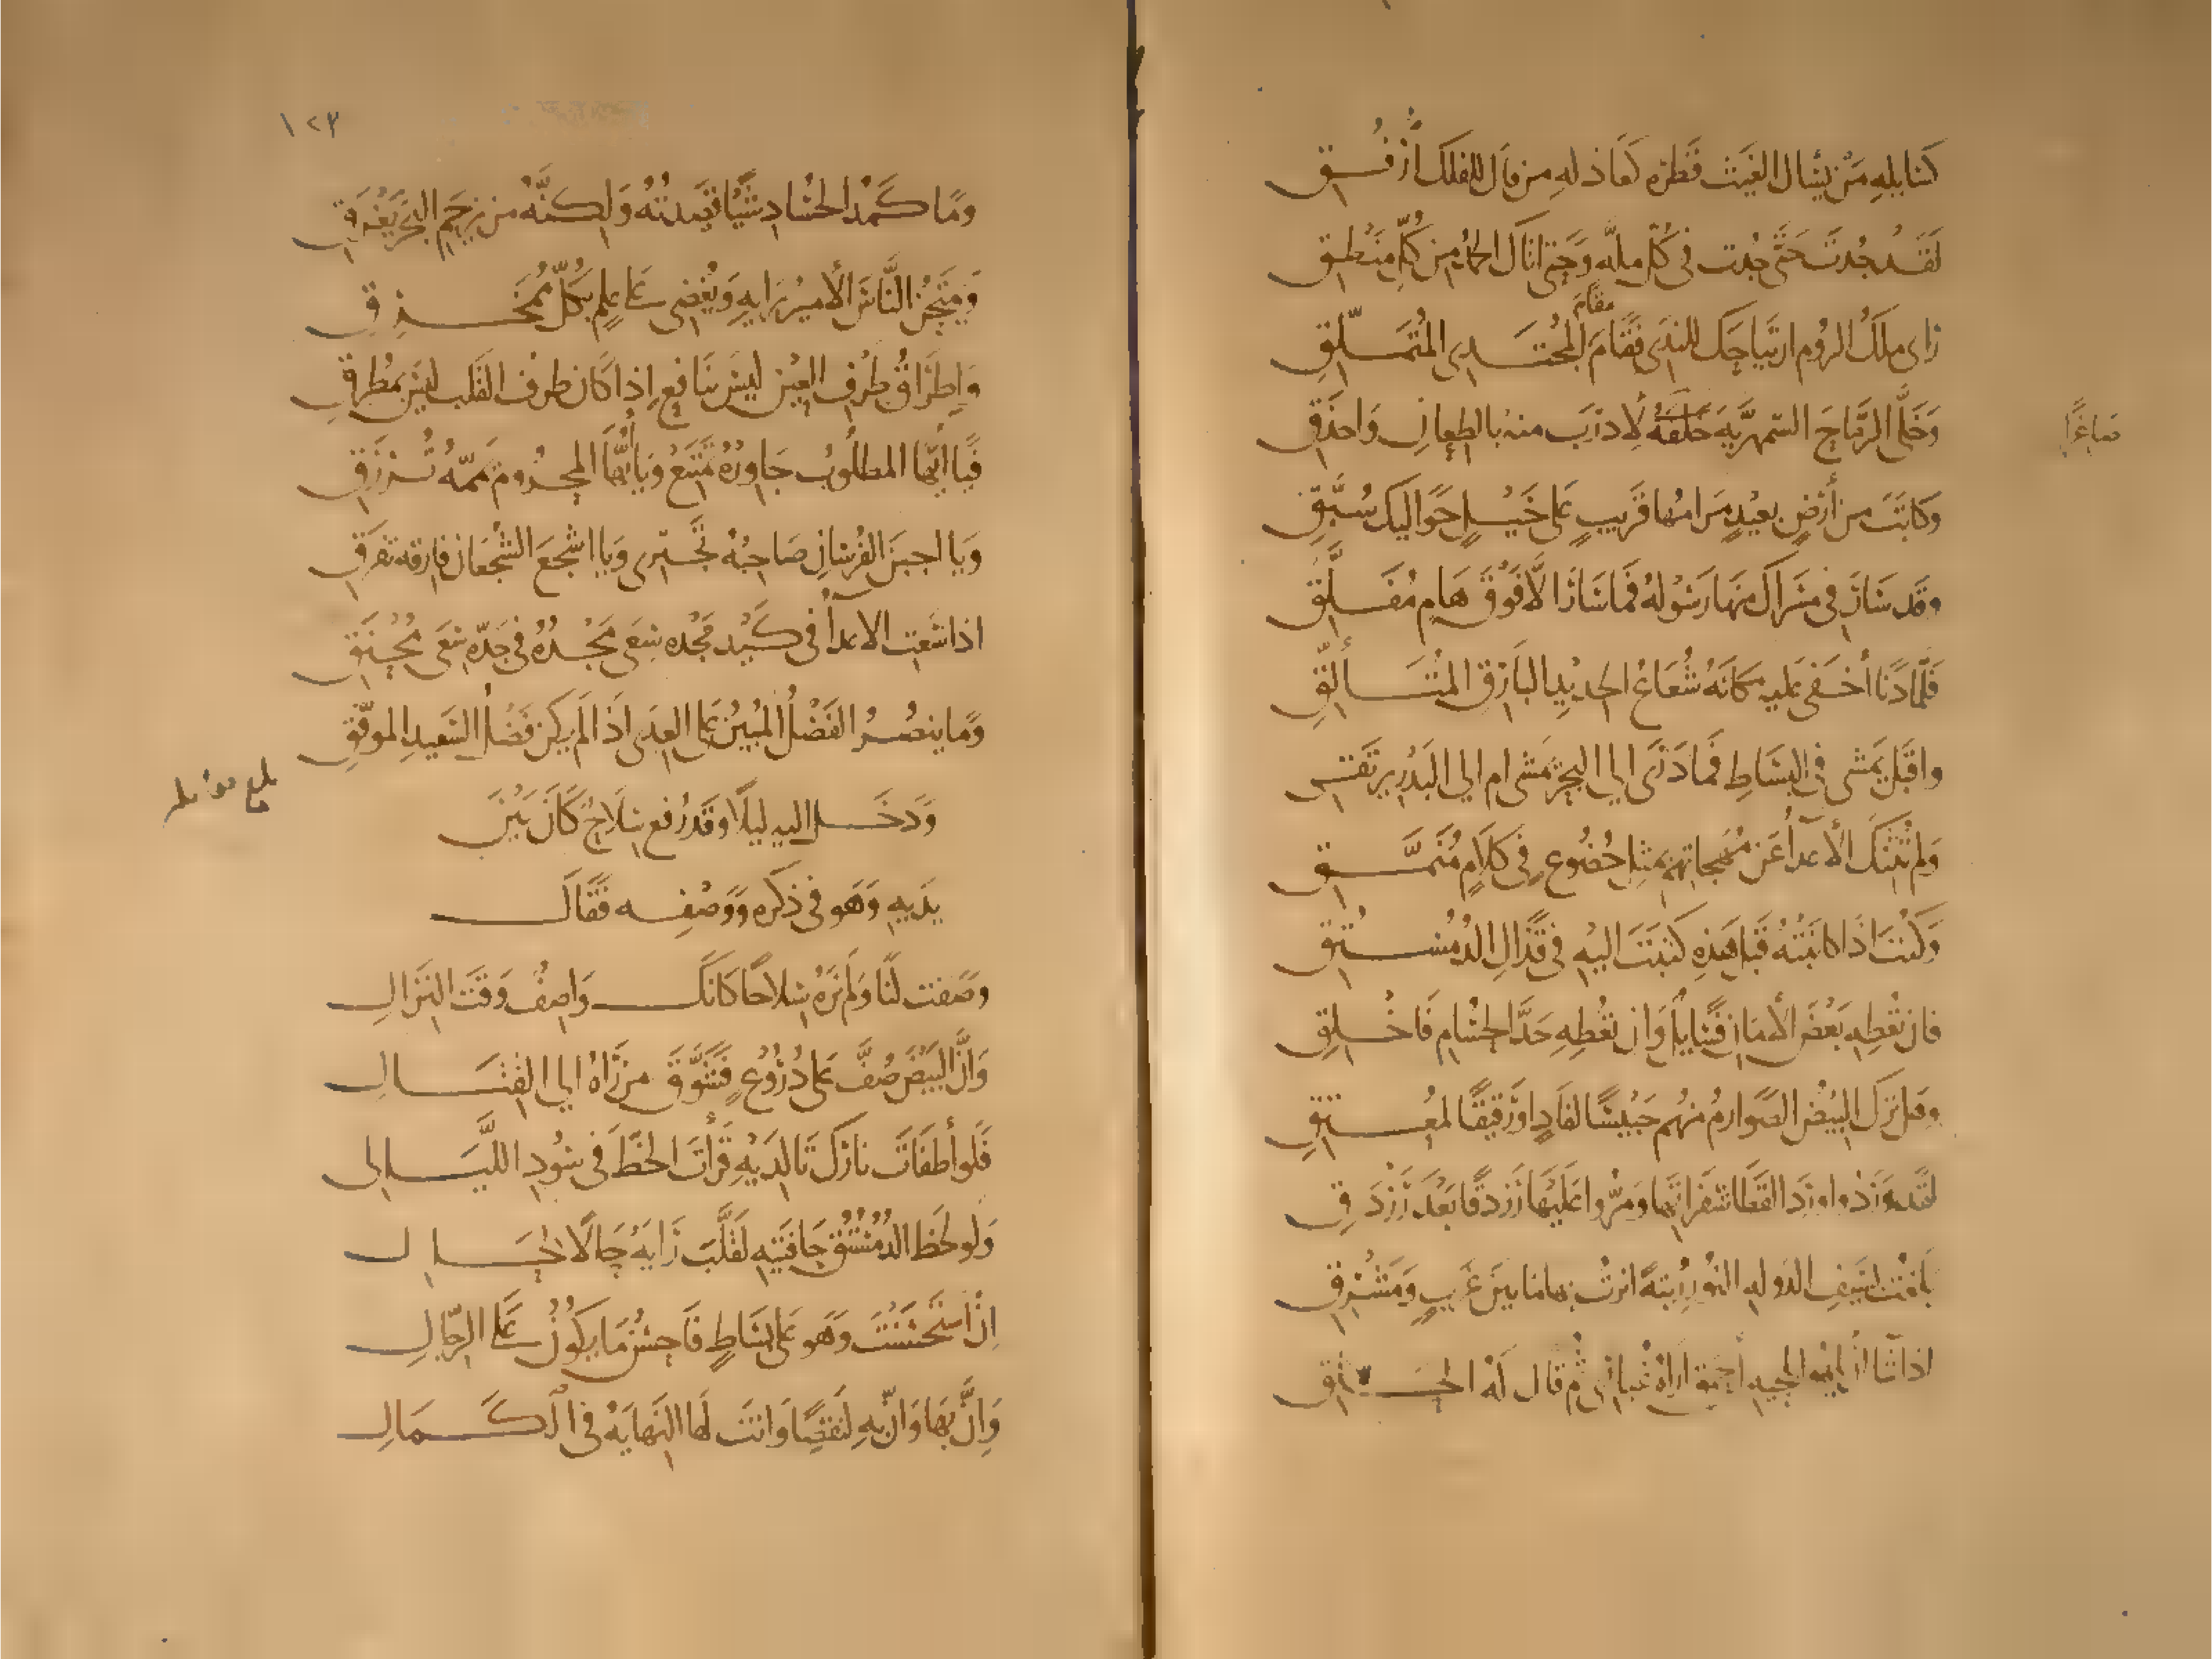 كسائله من يسأل الغيث قطرة كعاذله من قال للفلك ارفق
لقد جدت حتى جدت في كل ملة وحتى اتاك الحمد من كل منطق
مقام
رأى ملك الروم ارتياحك للندى فقام مقام المجتدي المتملق
وخلى الرماح السمهرية خلفه لأدرب منه بالطعان واحذق
صاغرا
وكاتب من أرض بعيد مرامها قريب على خيل حواليك سبق
وقد سار في مسراك منها رسوله فما سار الا فوق هام مفلق
فلما دنا أخفى عليه مكانه شعاع الحديد البارق المتألق
واقبل يمشي في البساط فما درى إلى البحر يمشي ام إلى البدر يرتقي
ولم تثنك الأعداء عن مهجاتهم بمثل خضوع في كلام منمق
وكنت اذا كاتبته قبل هذه كتبت اليه في قذال الدمستق
فان تعطه بعض الأمان فسايل وان تعطه حد الحسام فاخلق
وهل ترك البيض الصوارم منهم حبيسا لفاد او رقيقا لمعتق
لقد وردوا ورد القطا شفراتها ومروا عليها رزدقا بعد رزدق
بلغت بسيف الدولة النور رتبة انرت بها ما بين غرب ومشرق
اذا شاء أن يلهو بلحية أحمق اراه غباري ثم قال له الحق
١٢٣
وما كمد الحساد شيئا قصدته ولكنه من يزحم البحر يغرق
ويمتحن الناس الأمير برايه ويغضي على علم بكل ممخرق
واطراق طرف العين ليس بنافع اذا كان طرف القلب ليس بمطرق
فيا أيها المطلوب جاوره تمتنع ويا أيها المحروم يممه ترزق
ويا اجبن الفرسان صاحبه تجتري ويا اشجع الشجعان فارقه تفرق
اذا سعت الاعداء في كيد مجده سعى مجده في جده سعي محنق
وما ينصر الفضل المبين على العدى اذا لم يكن فضل السعيد الموفق
ودخل اليه ليلا وقد رفع سلاح كان بين
يديه وهو في ذكره ووصفه فقال
وصفت لنا ولم نره سلاحا كانك واصف وقت النزال
وان البيض صف على دروع فشوق من رآه الى القتال
فلو أطفأت نارك تا لديه قرأت الخط في سود الليالي
ولو لحظ الدمستق حافتيه لقلب رايه حالا لحال
إن استحسنت وهو على بساط فاحسن ما يكون على الرجال
وإن بها وان به لنقصا وانت لها النهاية في الكمال